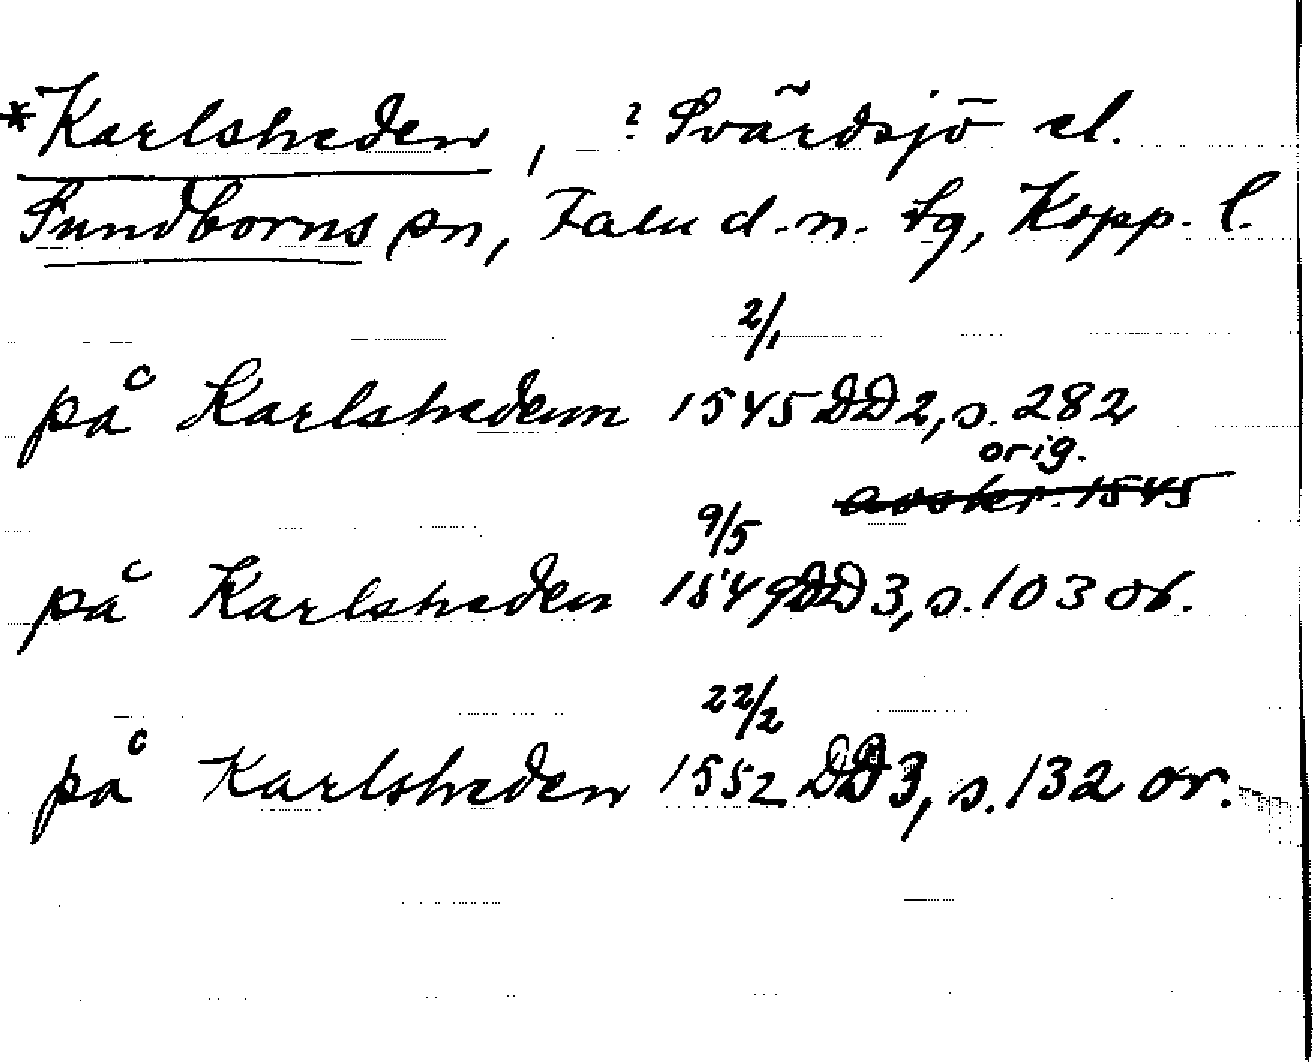 *Karlsheden, ? Svärdsjö el.
Sundborns sn, Falu d.n. tg, Kopp. l.
2/1
på Karlshedenn 1545 DD2, s. 282
orig.
avskr. 1545
9/5
på Karlsheden 1549 DD 3, s. 103 or.
22/2
på Karlsheden 1552 DD3, s. 132 or.